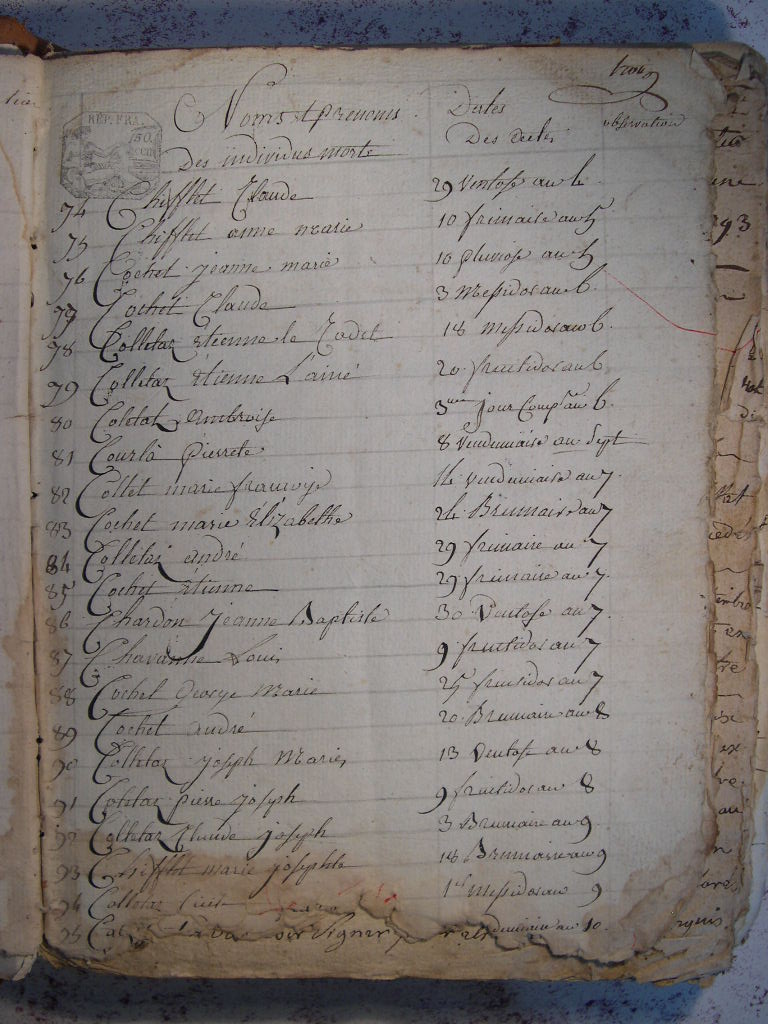 REP. FRA.
50
Noms et prenoms Dates
Des individus morts Des deces observations
74 Chifflet Claude 29 Ventose an 4
75 Chifflet anne marie 10 frimaire an 5
76 Cochet jeanne marie 10 pluviose an 5
77 Cochet Claude 3 Messidor an 6.
78 Colletaz Etienne le Cadet 18 messidor an 6.
79 Colletaz Etienne L'ainé 20 fructidor an 6
80 Colletaz Ambroise 3me jour Comp.re an 6.
81 Courla Pierrete 8 Vendemiaire an Sept
82 Collet marie francoise 14 vendemiaire an 7.
83 Cochet marie Elizabethe 24 Brumaire an 7
84 Colletaz andré 29 frimaire an 7
85 Cochet Etienne 29 frimaire an 7.
86 Chardon Jeanne Baptiste 30 Ventose an 7.
87 Chavanne Louis 9 fructidor an 7
88 Cochet George Marie 25 fructidor an 7
89 Cochet andré 20 Brumaire an 8
90 Colletaz joseph Marie 13 Ventose an 8
91 Colletaz pierre joseph 9 fructidor an 8
92 Colletaz Claude joseph 3 Brumaire an 9
93 Chifflet marie josephte 18 Brumaire an 9
94 Colletaz 1er messidor an 9
95 an 10.